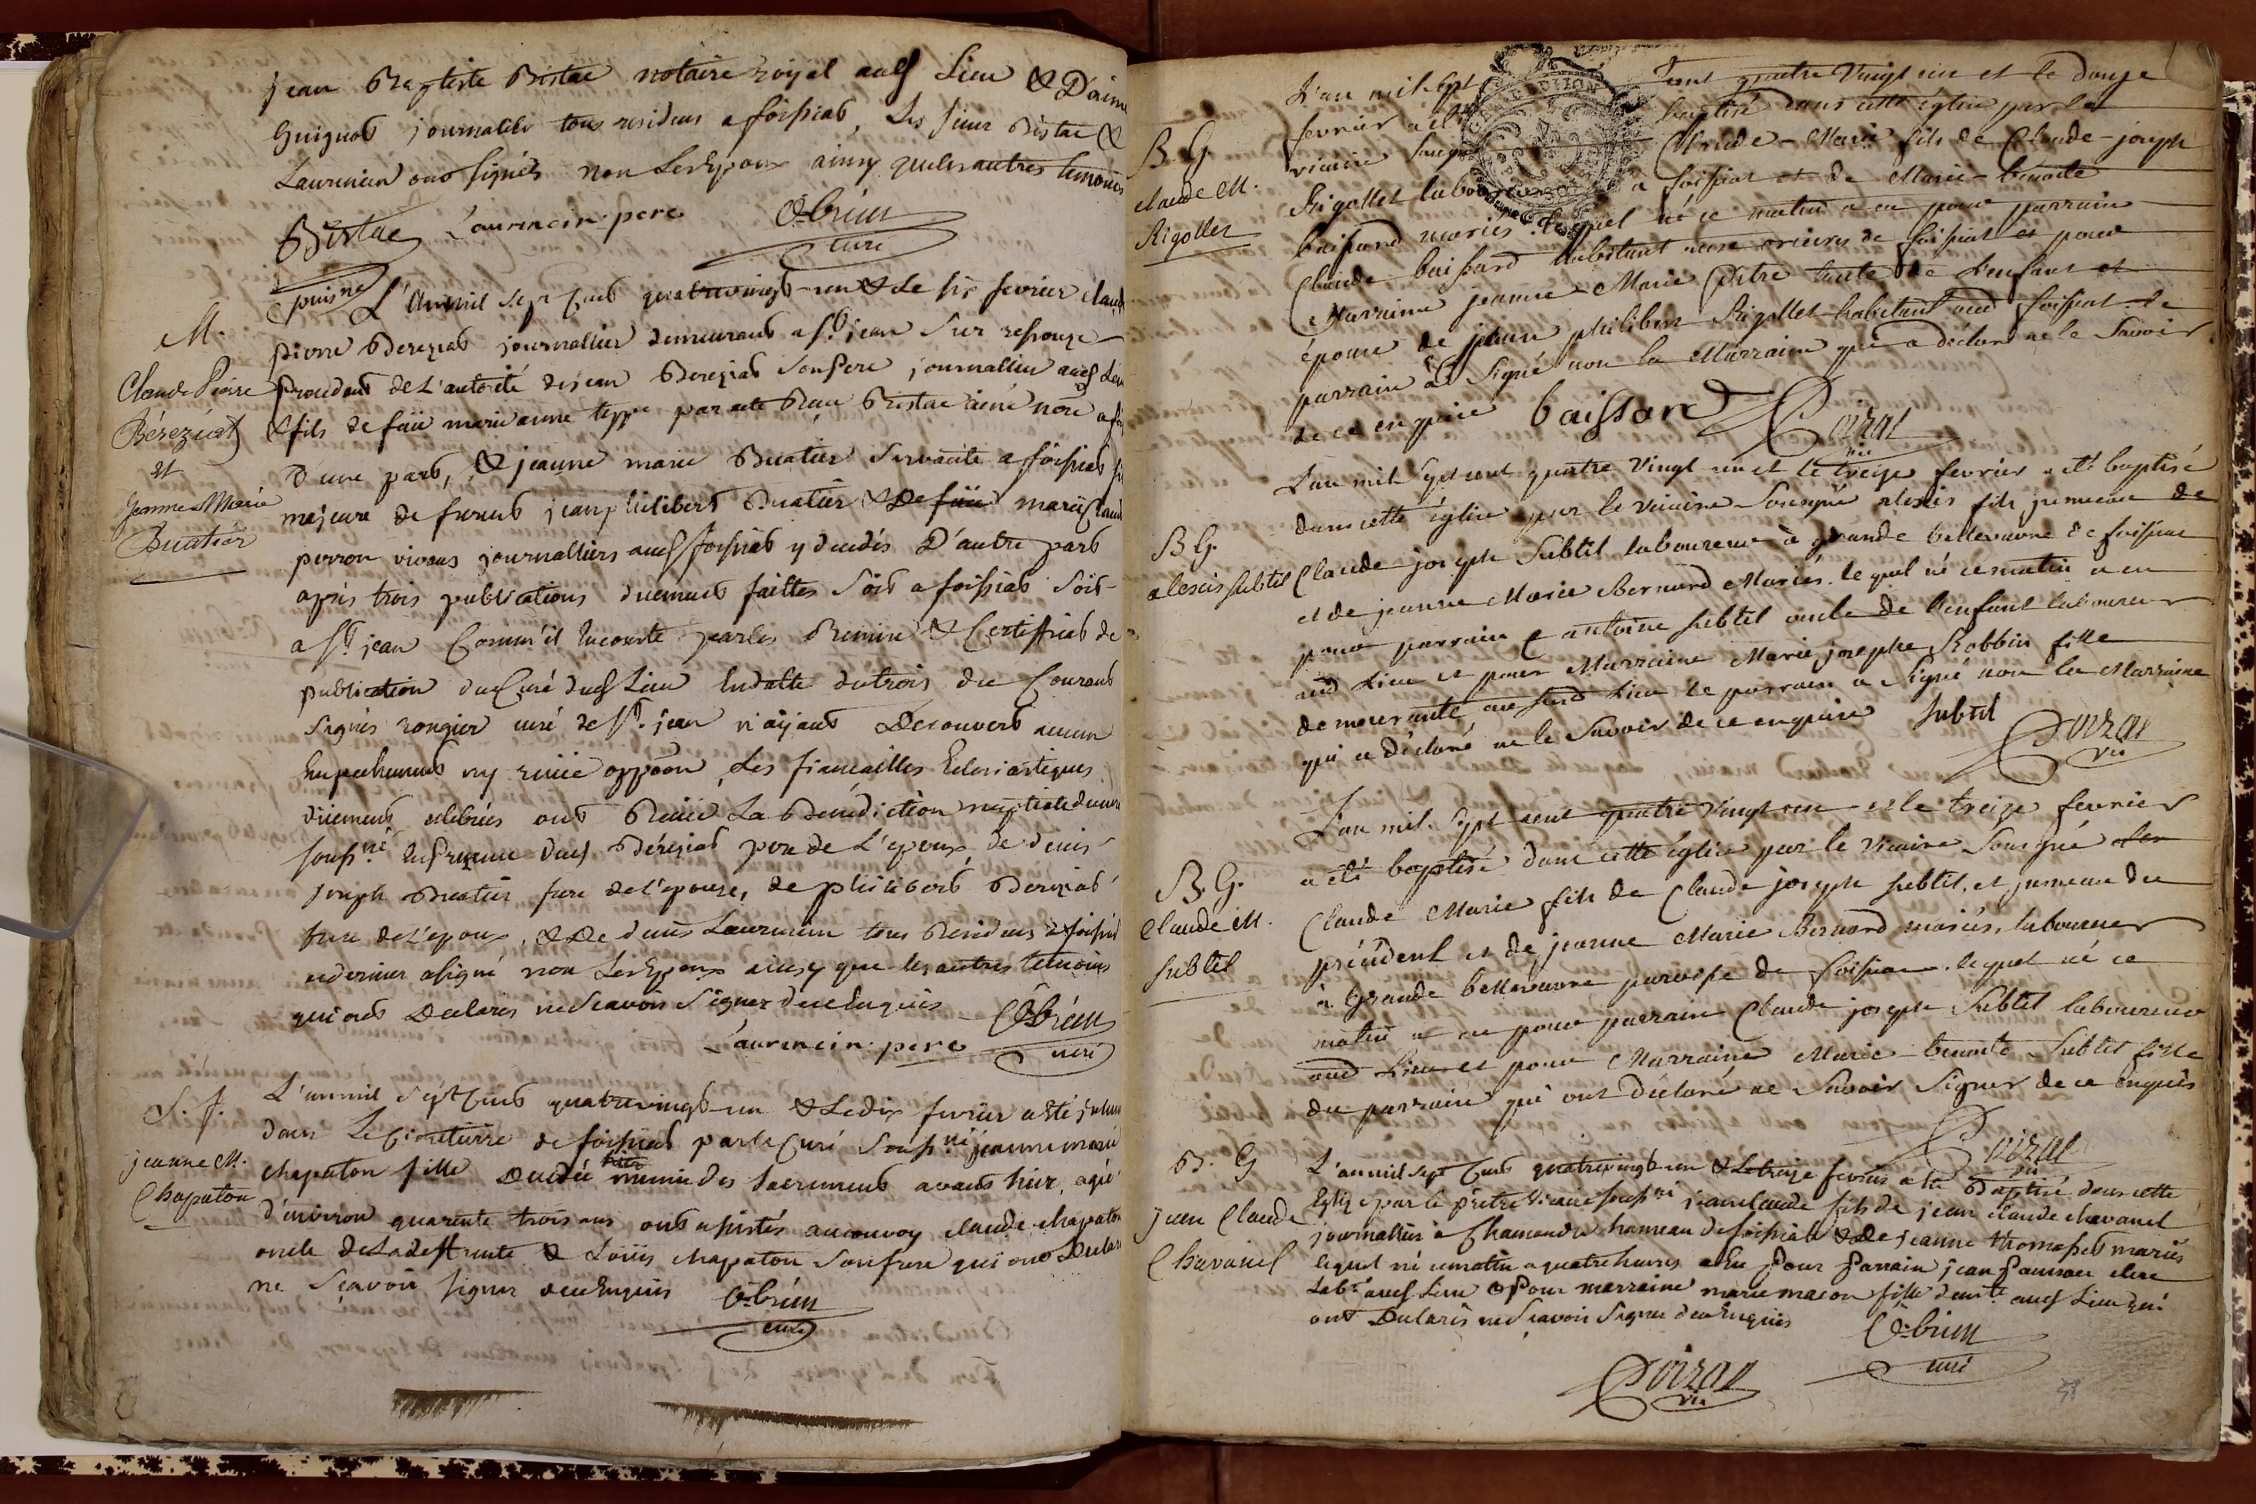 jean Baptiste Bistac notaire royal aud lieu & D'aimé
Guignot journalier tous residens a foissiat, Les sieur Bistac &
Laurencin ont signés non Les Epoux ainsy que les autres temoins
Bistac Laurencin pere Obrien
puisné curé
M.
Claude Pierre
Béréziat
et
Jeanne Marie
Buatier
L'an mil sept cent quatrevingt un & Le six fevrier claude
pierre Bereziat journallier demeurant a St jean Sur ressouze
procedant de L'autorité de jean Bereziat Son Pere journallier aud Lieu
& fils de füe marie anne tepp par acte Reçu Bistac ainé nore a
D'une part, & jeanne marie Buatier Servante a foissiat
majeure de furent jean philibert Buatier & De füe marie Claud
perron vivans journalliers aud foissiat y decedés D'autre part
après trois publications duement faittes Soit a foissiat Soit
a St jean Comm'il Enconste par les Remise & Certifficat de
publication du Curé dud Lieu En datte du trois du Courant
signés rongier curé de St jean n'ayant Decouvert aucun
Empechement ny reçüe oppoon Les fiancailles Eclesiastiques
düement celebrées ont Reçüe La Benediction nuptiale du curé
soussné En presence dud Béréziat pere de L'epoux de denis
joseph Buatier frere de l'epouse, de philibert Bereziat
frere de L'epoux, & De denis Laurencin tous Residens a foissiat
ce dernier asigné non Les Epoux ainsy que les autres temoins
qui ont Declarés ne Scavoir Signer de ce Enquis Obrien
Laurencin pere curé
S. f.
jeanne M.
Chapaton
L'an mil sept Cent quatrevingt un & Le dix fevrier a été inhumé
dans Le Cimetierre de foissiat par le Curé Soussné jeanne marie
chapaton fille Decedée munie des Sacrements avant hier, agée
d'environ quarente trois ans ont assistés au convoy claude chapaton
oncle de La deffunte & Loüis chapaton Son frere qui ont Declaré
ne Sçavoir signer de ce Enquis Obrien
curé
B. G.
Claude M.
Rigollet
L'an mil sept cent quatre vingt un et le douze
fevrier a été baptisé dans cette église par le
vicaire Sousigné Claude-Marie fils de Claude-joseph
Rigollet laboureur a foissiat et de Marie-benoite
baissard mariés. lequel né ce matin a eu pour parrain
Claude baissard habitant de foissiat et pour
Marraine jeanne Marie tante de l'enfant et
épouse de jean philibert Rigollet habitant aud foissiat le
parrain a Signé non la Marraine qui a déclaré ne le Savoir
de ce enquise baissard Poizat
vic
B G.
alexis Subtil
L'an mil sept cent quatre vingt un et le treize fevrier a été baptisé
dans cette église par le vicaire Sousigné alexis fils jumeau de
Claude joseph Subtil laboureur à grande bellevavre de foissiat
et de jeanne Marie Bernard Mariés. lequel né ce matin a eu
pour parrain C antoine Subtil oncle de l'enfant laboureur
aud Lieu et pour Marraine Marie josephe Robbin fille
demeurante au susd Lieu le parrain a Signé non la Marraine
qui a déclaré ne le Savoir de ce enquise Subtil
Poizat
vic
B. G.
Claude M.
Subtil
L'an mil Sept cent quatre vingt un et le treize fevrier
a été baptisé dans cette église par le Vicaire Sousigné
Claude Marie fils de Claude joseph Subtil, et jumeau du
précédent et de jeanne Marie Bernard mariés, laboureur
à Grande bellevavre paroisse de foissiat. lequel né ce
matin a eu pour parrain Claude joseph Subtil laboureur
aud Lieu et pour Marraine Marie benoite Subtil fille
du parrain qui ont déclaré ne Savoir Signer de ce enquis
Poizat
vic
B. G
jean Claude
Chavanel
L'an mil sept Cent quatrevingt un & Le treize fevrier a été Baptisé dans cette
Eglize par le prêtre Vicaire soussné jean claude fils de jean claude chavanel
journallier à Chamandre hameau de foissiat & De jeanne thomasset mariés
lequel né ce matin a quatre heures a Eu pour Parrain jean
Labr aud Lieu & Pour marraine marie macon fille demte aud Lieu qui
ont Declarés ne Sçavoir Signer de ce Enquis Obrien
curé
Poizat
vic